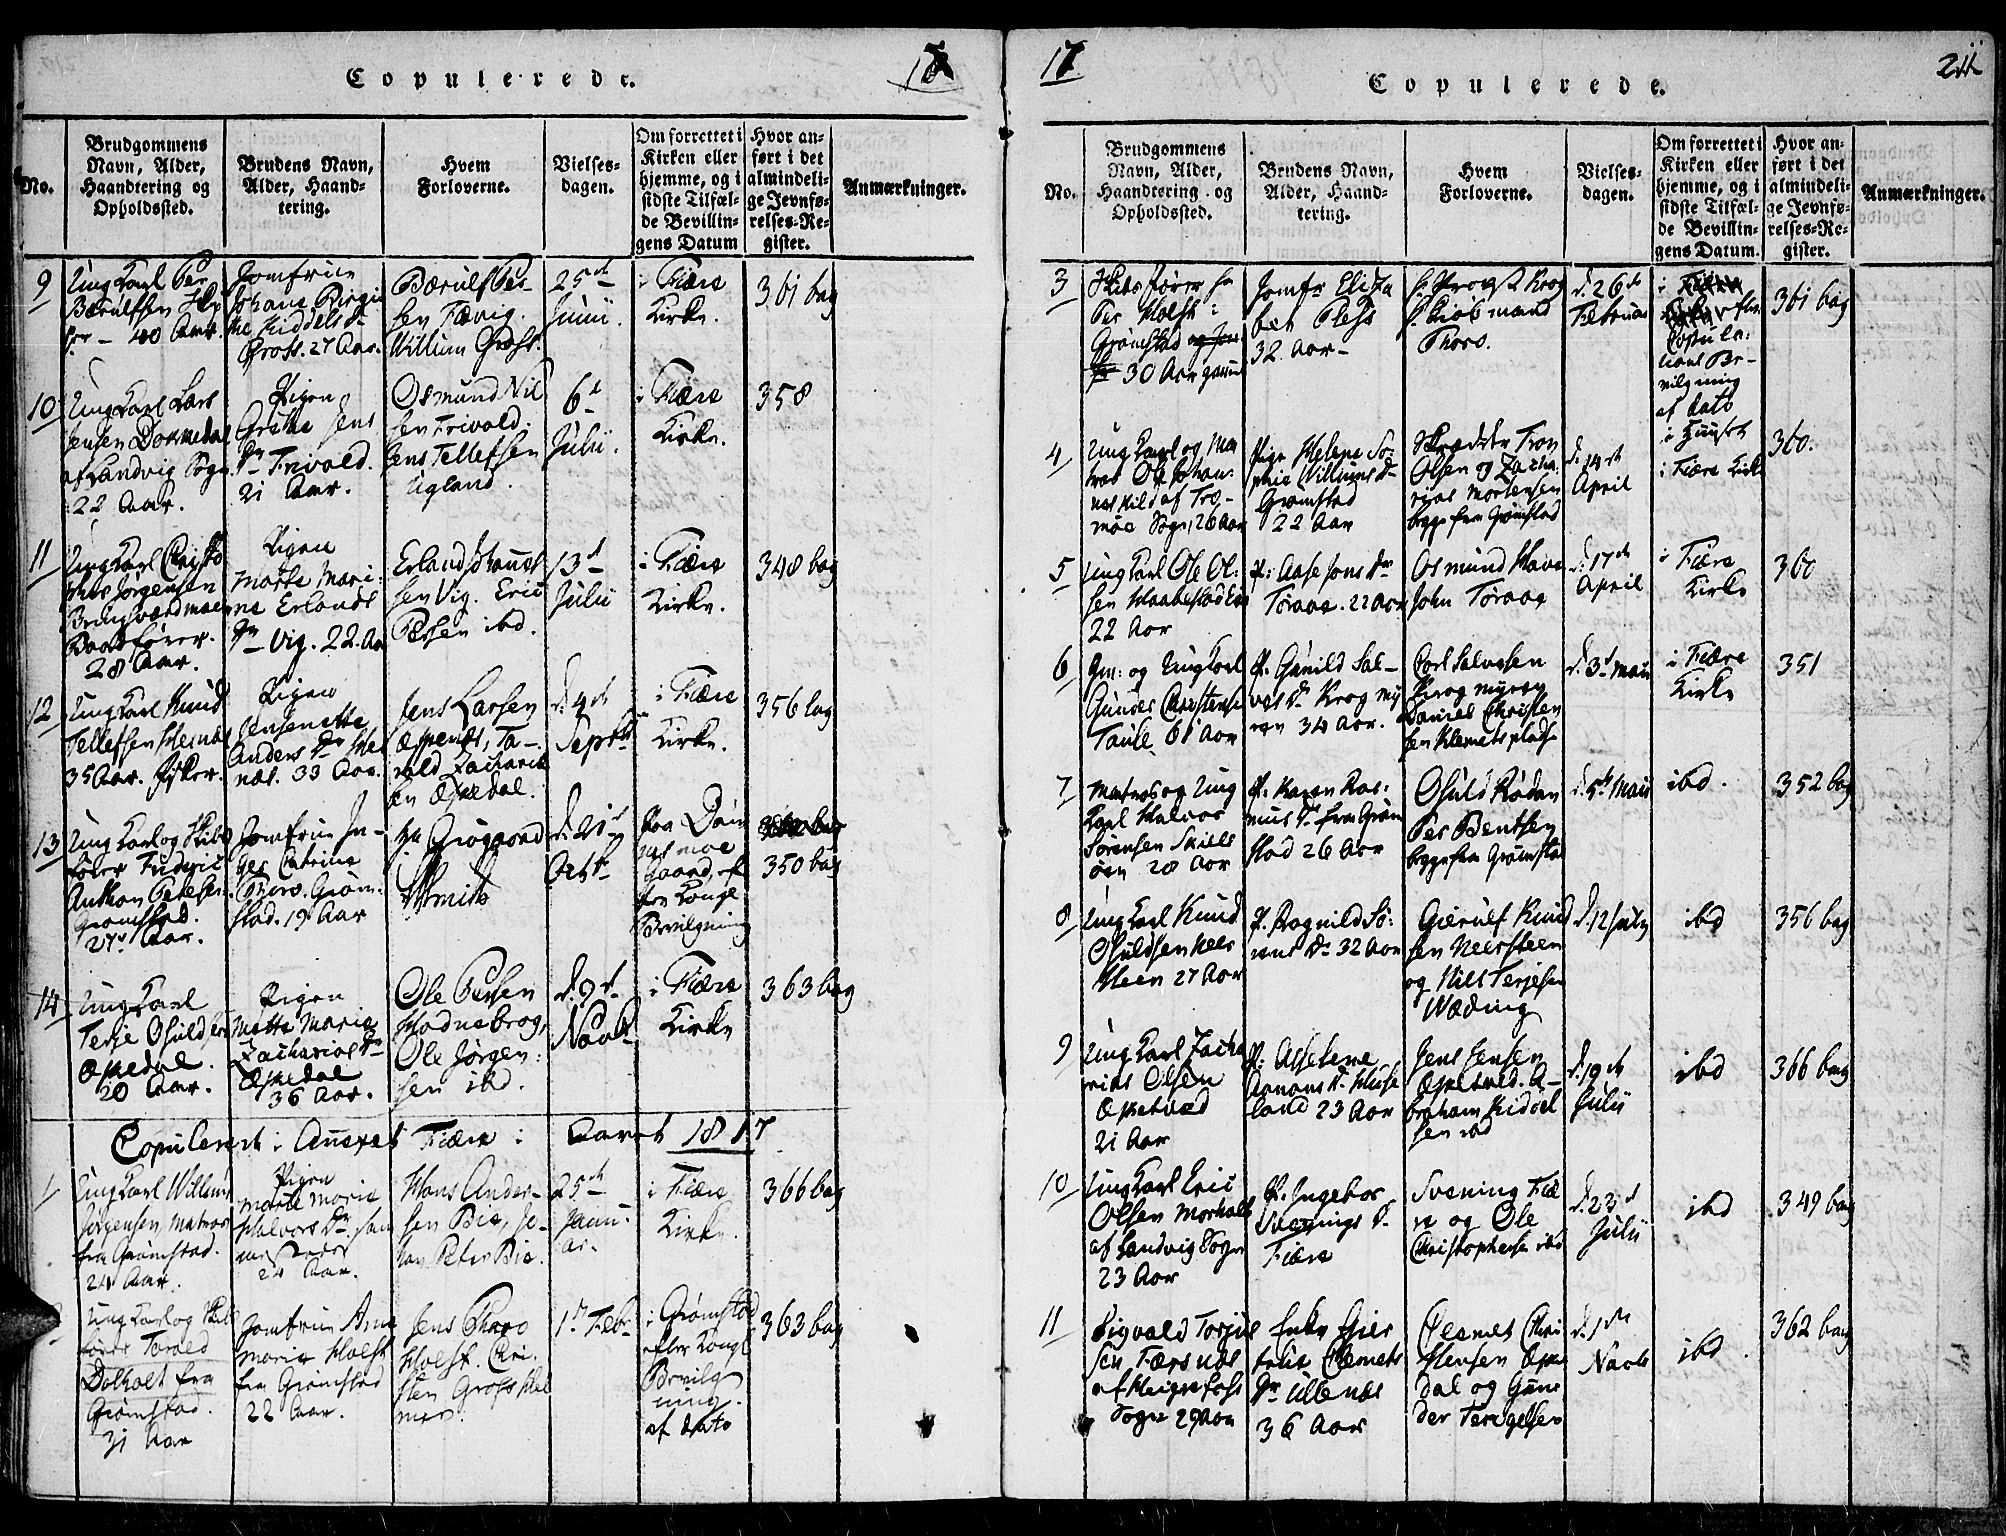 Copulerede.
No.
Brudgommens
Navn, Alder,
Haandtering og
Opholdssted.
Brudens Navn,
Alder, Haand-
tering.
Hvem
Forloverne.
Vielses-
dagen.
Om forrettet i
Kirken eller
hjemme, og i
sidste Tilfæl-
de Bevillin-
gens Datum
Hvor an-
ført i det
almindeli-
ge Jevnfø-
relses-Re-
gister.
Anmærkninger.
9
Ung Karl Per
Bærulfsen
40 Aar.
Jomfrue
Johane Birgit
Kiddels Dr
Gross. 27 Aar.
Bærulf Per-
sen Fævig.
Willium Gross.
25de
Junii.
i Fiære
Kirke.
361 bag
10
Ung Karl Lars
Jensen Dommedal
af Landvig Sogn
22 Aar.
Pigen
Grethe Jens
Dr Frivold.
21 Aar.
Osmund Nil
sen Frivold.
Jens Tellefsen
Ugland.
6te
Julii.
i Fiære
Kirke.
358
11
Ung Karl Christo
phes Jørgensen
Bringsværdmoen
Baadsfører.
28 Aar.
Pigen
Marte Mari-
ne Erlands
Dr Vig. 22 Aar
Erland Knud
sen Vig. Eric
Persen ibd.
13de
Julii
i Fiære
Kirke.
348 bag
12
Ung Karl Knud
Tellefsen Hesnæs
35 Aar. fisker.
Pigen
Jensenette
Anders Dr Hes
næs. 33 Aar.
Jens Larsen
Espenes, Ta-
rald Zacharia
sen Eskedal.
d. 4de
Septbr
i Fiære
Kirke.
356 bag
13
Ung Karl og Skibs
fører Frideric
Anthon Petersen
Grømstad.
27 Aar.
Jomfrue In-
ger Catrine
Thors. Grøm-
stad. 19 Aar
Hr Grøgaard
Smith
d. 21de
Octbr
paa Døm
mesmoe
Gaard, ef
ter Kongl
Bevilgning
350 bag
14
Ung Karl
Terie Osuldsen
Eskedal.
20 Aar.
Pigen
Mette Marie
Zacharias Dr
Eskedal
36 Aar.
Ole Persen
Hodnebrog,
Ole Jørgen-
sen ibd.
d. 9de
Novbr
i Fiære
Kirke
363 bag
Copulerede i Annexet Fiære i Aaret 1817
1
Ung Karl Willum
Jørgensen Matros
fra Grømstad.
24 Aar.
Pigen
Marte Marie
Halvors Dr
24 Aar.
Hans Ander-
sen Bie, Jo-
han Peter Bie.
25de
Janu-
ar.
i Fiære
Kirke.
366 bag
Ung Karl og Skibs
fører Tarald
Dolholt fra
Grømstad.
31 Aar
Jomfrue Anne
Marie Holst
fra Grømstad
22 Aar.
Jens Tharo
Holst. Chri-
sten Gross
1de Febr
i Grømstad
efter Kongl
Bevilg
ning.
af dato
363 bag
17
211
Copulerede.
No.
Brudgommens
Navn, Alder,
Haandtering og
Opholdssted.
Brudens Navn,
Alder, Haand-
tering.
Hvem
Forloverne.
Vielses-
dagen.
Om forrettet i
Kirken eller
hjemme, og i
sidste Tilfæl-
de Bevillin-
gens Datum.
Hvor an-
ført i det
almindeli-
ge Jevnfø-
relses-Re-
gister.
Anmærkninger.
3
Skibsfører Hr
Per Holst i
Grømstad
30 Aar gammel
Jomfr Eliza
bet Pless
32 Aar-
Hr Provst Krog
Hr Kiøbmand
Thors.
d. 26de
Februar
i
Copula-
tions Be-
vilgning
af dato
i Huuset
361 bag
4
Ung Karl og Ma
tros Ole Johan-
nes Kild af Tro-
møe Sogn, 26 Aar
Pige Helene So-
phie Williums Dr
Grømstad
22 Aar
Skræder Tron
Olsen og Zacha-
rias Mortensen
begge fra Grømstad
d. 14de
April
i Fiære Kirke
360.
5
Ung Karl Ole Ol-
sen Haabestad
22 Aar
P: Aase Jons Dr
Toraag. 22 Aar
Osmund Have
John Toraag
d. 17de
April
i Fiære
Kirke
360
6
Gm: og Ung Karl
Gunder Christense
Taule 61 Aar
P. Gunild Sal-
ves Dr Krogmy
ren 34 Aar.
Carl Salvesen
Krogmyren
Daniel Christen
sen Klemetsplads
d. 3de Maii
i Fiære
Kirke
351
7
Matros og Ung
Karl Halvor
Sørensen Skiels
øen 28 Aar
P. Karen Ras-
mus Dr fra Grøm
stad 26 Aar
Osuld Rødan
Per Bentsen
begge fra Grømstad
d. 5te Maii
ibd.
352 bag
8
Ung Karl Knud
Osuldsen Neer
steen 27 Aar
P. Ragnild Sø-
rens Dr 32 Aar
Gierulf Knud
sen Neersteen
og Nils Terjesen
Wæding
d. 12 July
ibd
356 bag
9
Ung Karl Zacha
rias Olsen
Esketved
21 Aar
P: Asselene
Aanons Dr Huse
land 23 Aar
Jens Jensen
Esketved. A-
braham Kiddel
sen ibd
d. 19de
Julii
ibd
366 bag
10
Ung Karl Eric
Olsen Morholt
af Landvig Sogn
23 Aar
P. Ingebor
Svennings Dr
Fiære
Svening Fiæ
re og Ole
Christophersen ibd
d. 23de
Julii
ibd
349 bag
11
Sigvald Torjus
sen Færsnæs
af Heignefoss
Sogn 29 Aar
Enke Gier
truz Clemets
Dr Ullenæs
36 Aar
Clemet Chri
stensen Eske
dal og Gun-
der Terigelsen
d. 1de
Novb
ibd.
362 bag